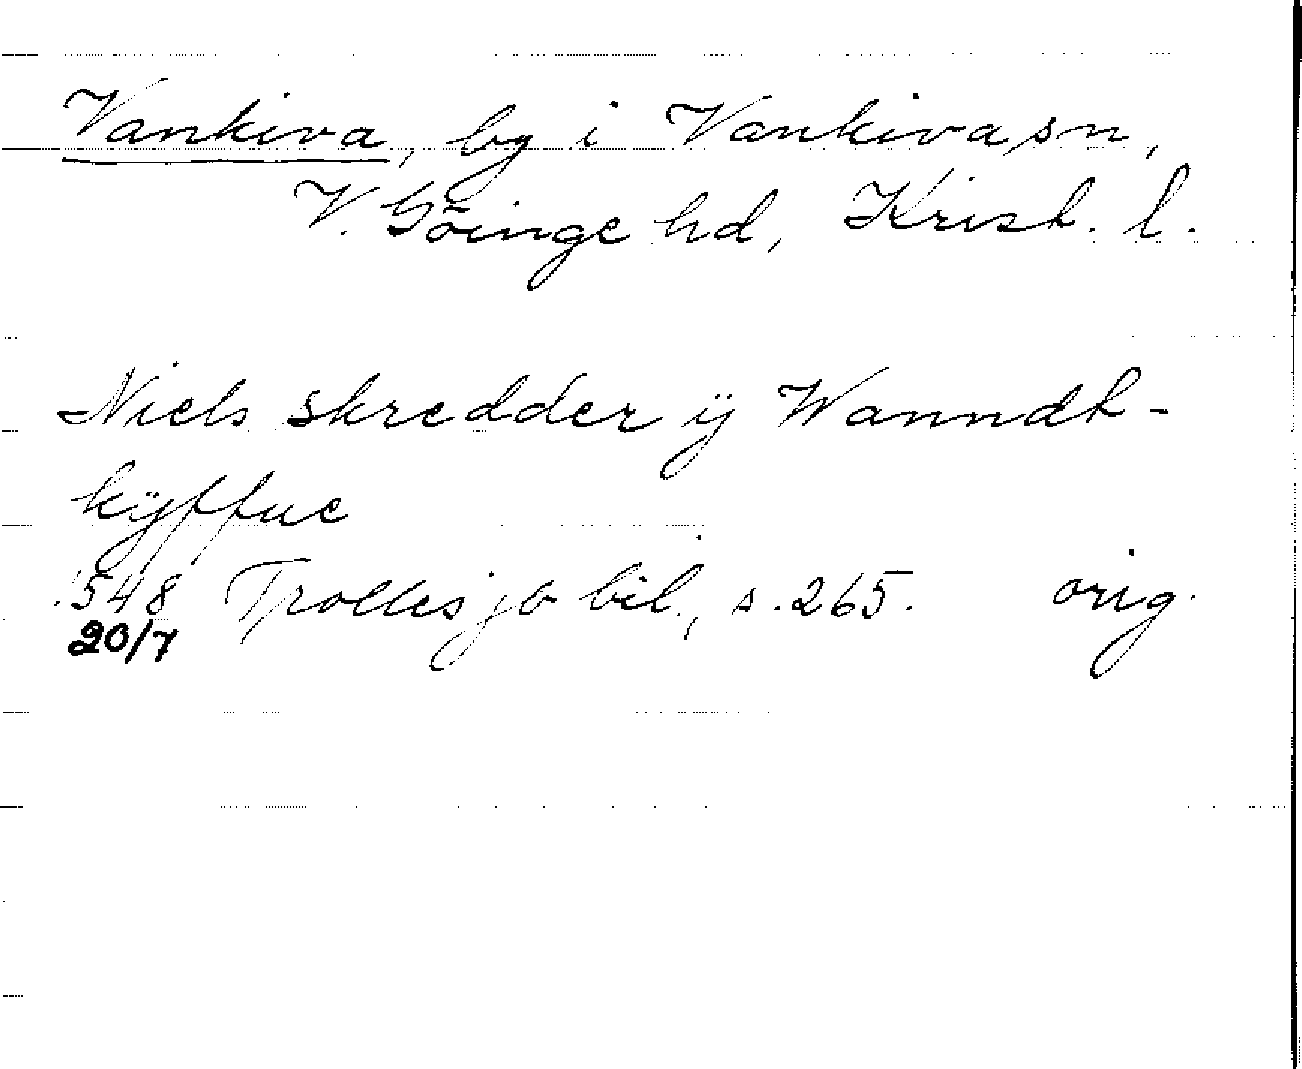 Vankiva, by i Vankiva sn,
V. Göinge hd, Krist. l.
Niels skredder ij Wanndt-
kÿffue
1548 Trolles jb bil., s. 265. orig.
20/7